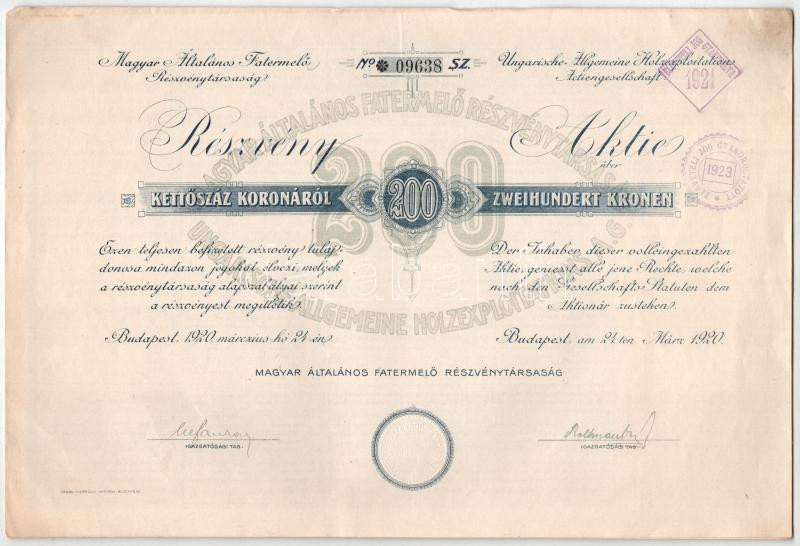 Magyar Általános Fatermelő
Részvénytársaság
No ✽ 09638 SZ.
Ungarische Allgemeine Holzexploitations
Actiengesellschaft
1921
ELŐVÉTELI JOG GYAKOROLTATOTT
1923
MAGYAR ÁLTALÁNOS FATERMELŐ RÉSZVÉNYTÁRSASÁG
200
Részvény
Aktie
über
KETTŐSZÁZ KORONÁRÓL
200
ZWEIHUNDERT KRONEN
Ezen teljesen befizetett részvény tulaj-
donosa mindazon jogokat élvezi, melyek
a részvénytársaság alapszabályai szerint
a részvényest megilletik.
Der Inhaber dieser volleingezahlten
Aktie, geniesst alle jene Rechte, welche
nach den Gesellschafts-Statuten dem
Aktionär zustehen.
ALLGEMEINE HOLZEXPLOITATIONS
Budapest, 1920. március hó 24-én.
Budapest, am 24ten März 1920.
MAGYAR ÁLTALÁNOS FATERMELŐ RÉSZVÉNYTÁRSASÁG
IGAZGATÓSÁGI TAG.
IGAZGATÓSÁGI TAG.